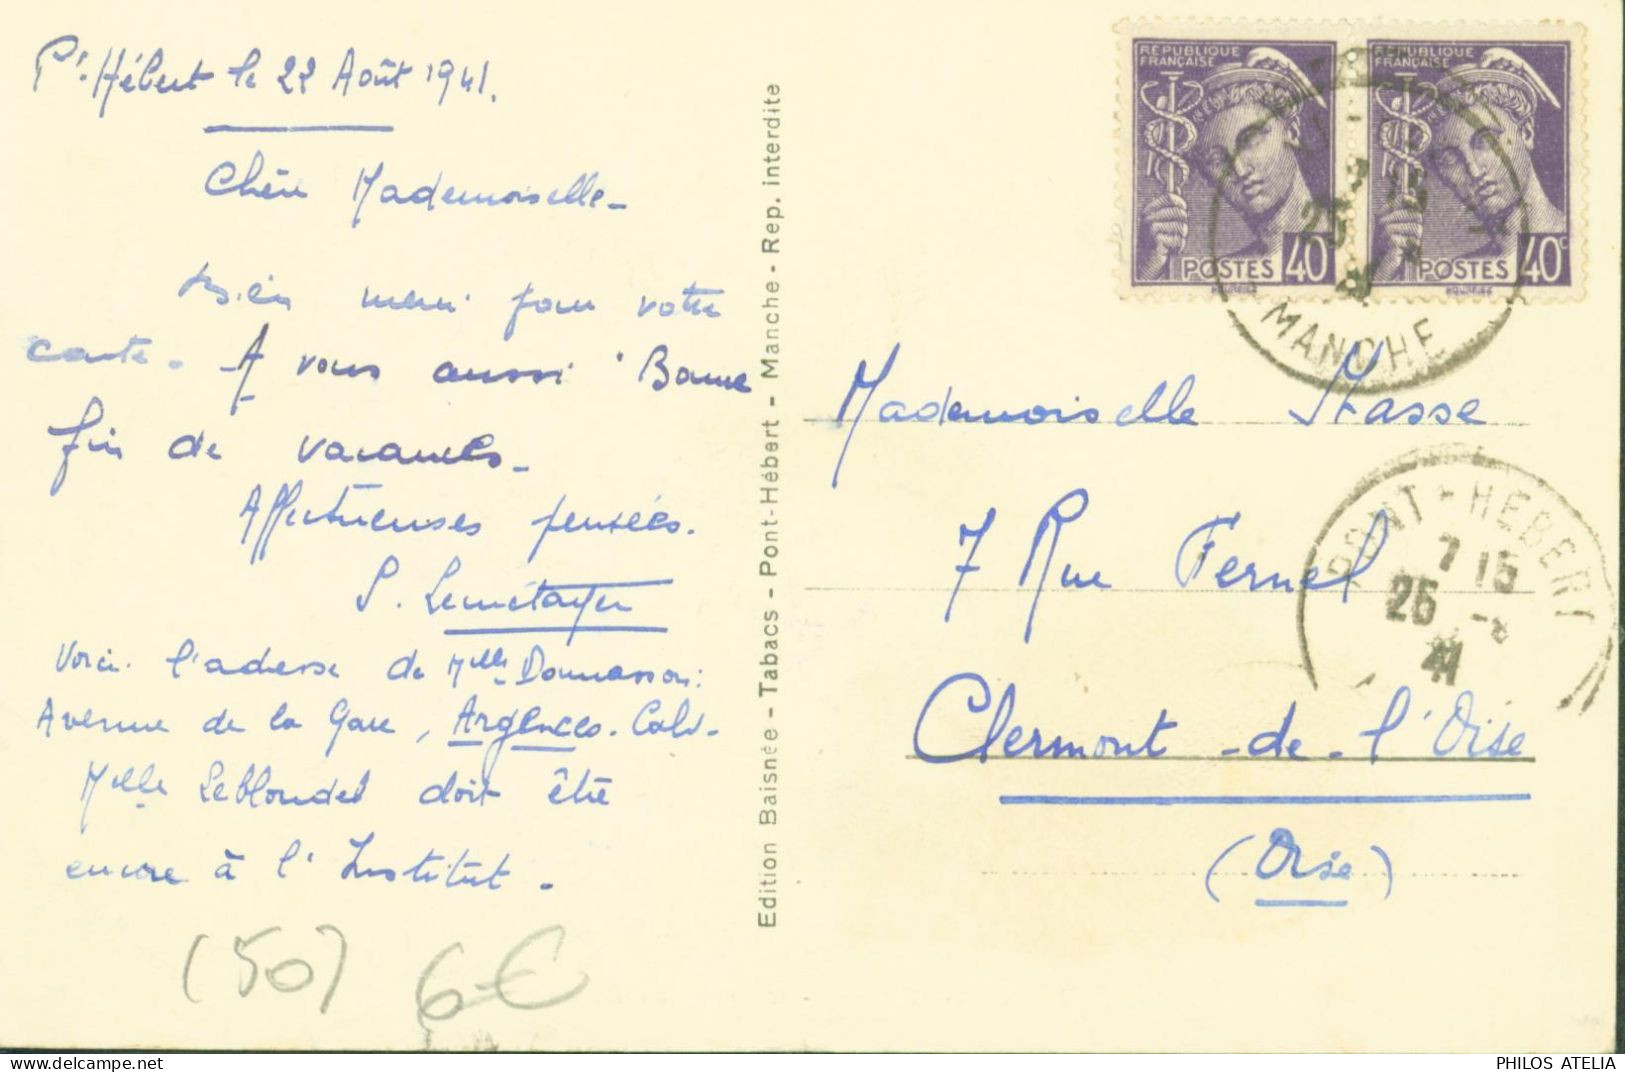 Pt-Hébert le 22 Août 1941.
Chère Mademoiselle-
Bien merci pour votre
carte. A vous aussi Bonne
fin de vacances-
Affectueuses pensées.
S. Lemétayer
Voici l'adresse de Melle Donnasson:
Avenue de la Gare, Argences. Calv-
Melle Leblondel doit être
encore à l'Institut-
(50) 6€
Edition Baisnée - Tabacs - Pont-Hébert - Manche - Rep. interdite
RÉPUBLIQUE FRANÇAISE
POSTES 40c
RÉPUBLIQUE FRANÇAISE
POSTES 40c
MANCHE
Mademoiselle Masse
7 Rue Fernel
Clermont-de-l'Oise
(Oise)
PONT-HEBERT
7 15
25 -8
41
PHILOS ATELIA